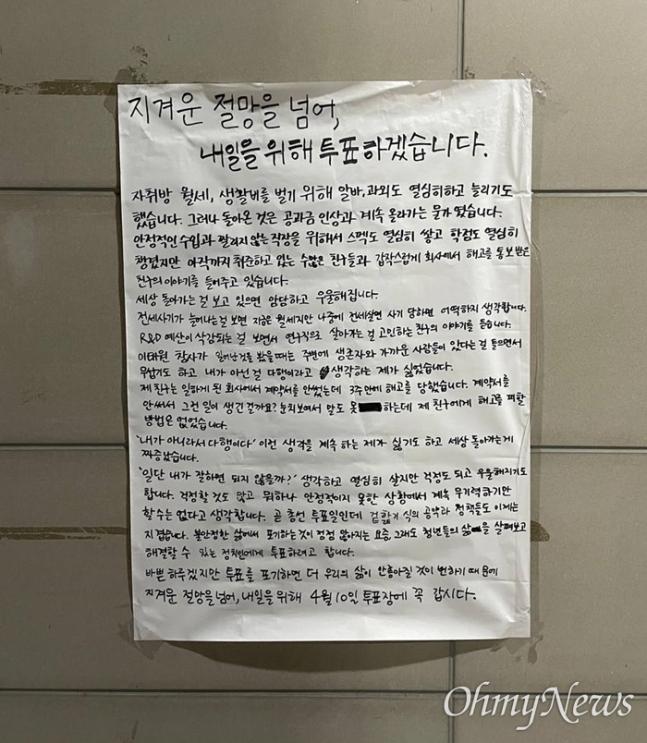 지겨운 절망을 넘어,
내일을 위해 투표하겠습니다.
자취방 월세, 생활비를 벌기 위해 알바, 과외도 열심히하고 늘리기도
했습니다. 그러나 돌아온 것은 공과금 인상과 계속 올라가는 물가 였습니다.
안정적인 수입과 잘리지않는 직장을 위해서 스펙도 열심히 쌓고 학점도 열심히
챙겼지만 아직까지 취준하고 있는 수많은 친구들과 갑작스럽게 회사에서 해고를 통보받은
친구의 이야기를 들어주고 있습니다.
세상 돌아가는 걸 보고 있으면 암담하고 우울해집니다.
전세사기가 늘어나는걸 보면 지금은 월세지만 나중에 전세살면 사기 당하면 어떡하지 생각합니다.
R&D 예산이 삭감되는 걸 보면서 연구직으로 살아가는 걸 고민하는 친구의 이야기를 듣습니다.
이태원 참사가 일어난것을 봤을때는 주변에 생존자와 가까운 사람들이 있다는 걸 들으면서
무섭기도 하고 내가 아닌걸 다행이라고 생각하는 제가 싫었습니다.
제 친구는 일하게 된 회사에서 계약서를 안썼는데 3주만에 해고를 당했습니다. 계약서를
안써서 그런 일이 생긴 걸까요? 눈치보여서 말도 못 하는데 제 친구에게 해고를 피할
방법은 없었습니다.
'내가 아니라서 다행이다' 이런 생각을 계속 하는 제가 싫기도 하고 세상 돌아가는게
짜증났습니다.
'일단 내가 잘하면 되지 않을까?' 생각하고 열심히 살지만 걱정도 되고 우울해지기도
합니다. 걱정할 것도 많고 뭐하나 안정적이지 못한 상황에서 계속 무기력하기만
할수는 없다고 생각합니다. 곧 총선 투표일인데 겉핥기 식의 공약과 정책들도 이제는
지겹습니다. 불안정한 삶에서 포기하는것이 점점 많아지는 요즘, 그래도 청년들의 삶을 살펴보고
해결할 수 있는 정치인에게 투표하려고 합니다.
바쁜 하루겠지만 투표를 포기하면 더 우리의 삶이 안좋아질 것이 뻔하기 때문에
지겨운 절망을 넘어, 내일을 위해 4월 10일 투표장에 꼭 갑시다.
OhmyNews